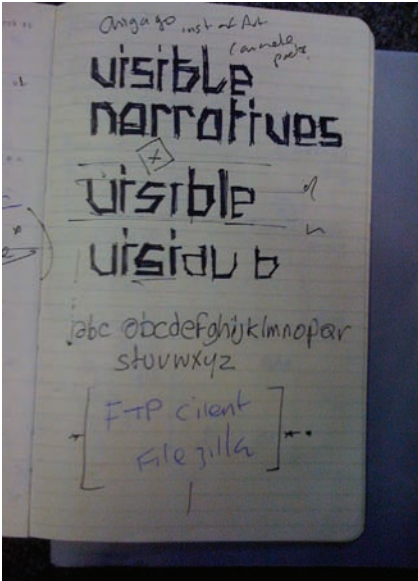 inst of Art
visible
narratives
visible
visiou b
abc abcdefghijklmnopqr
stuvwxyz
FTP cilent
Filezilla